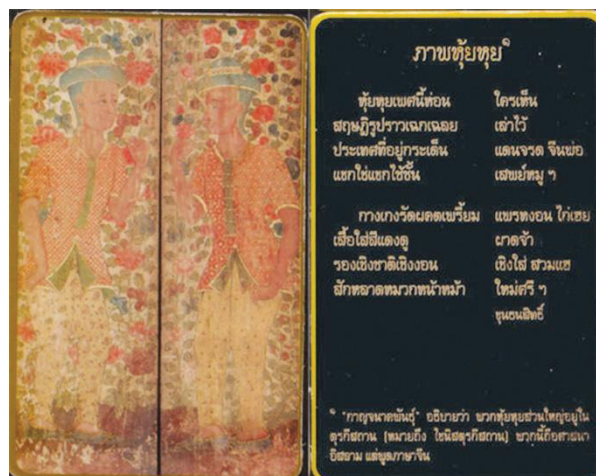 ภาพหุ้ยหุย๑
หุ้ยหุยเพศนี้ห่อน ใครเห็น
สฤษฎิรูปราวเฉกเฉลย เล่าไว้
ประเทศที่อยู่กระเด็น แดนจรด จีนพ่อ
แขกใช่แขกใช้ชั้น เสพย์หมู ฯ
กางเกงรัดผคตเพรี้ยม แพรหงอน ไก่เฮย
เสื้อใส่สีแดงดู ผาดจ้า
รองเชิงชาติเชิงงอน เชิงใส่ สวมแฮ
สักหลาดหมวกหน้าหม้า ใหม่ศรี ฯ
ขุนธนสิทธิ์
๑ "กาญจนาคพันธุ์" อธิบายว่า พวกหุ้ยหุยส่วนใหญ่อยู่ใน
ตุรกีสถาน (หมายถึง ไชนิสตุรกีสถาน) พวกนี้ถือศาสนา
อิสลาม แต่พูดภาษาจีน